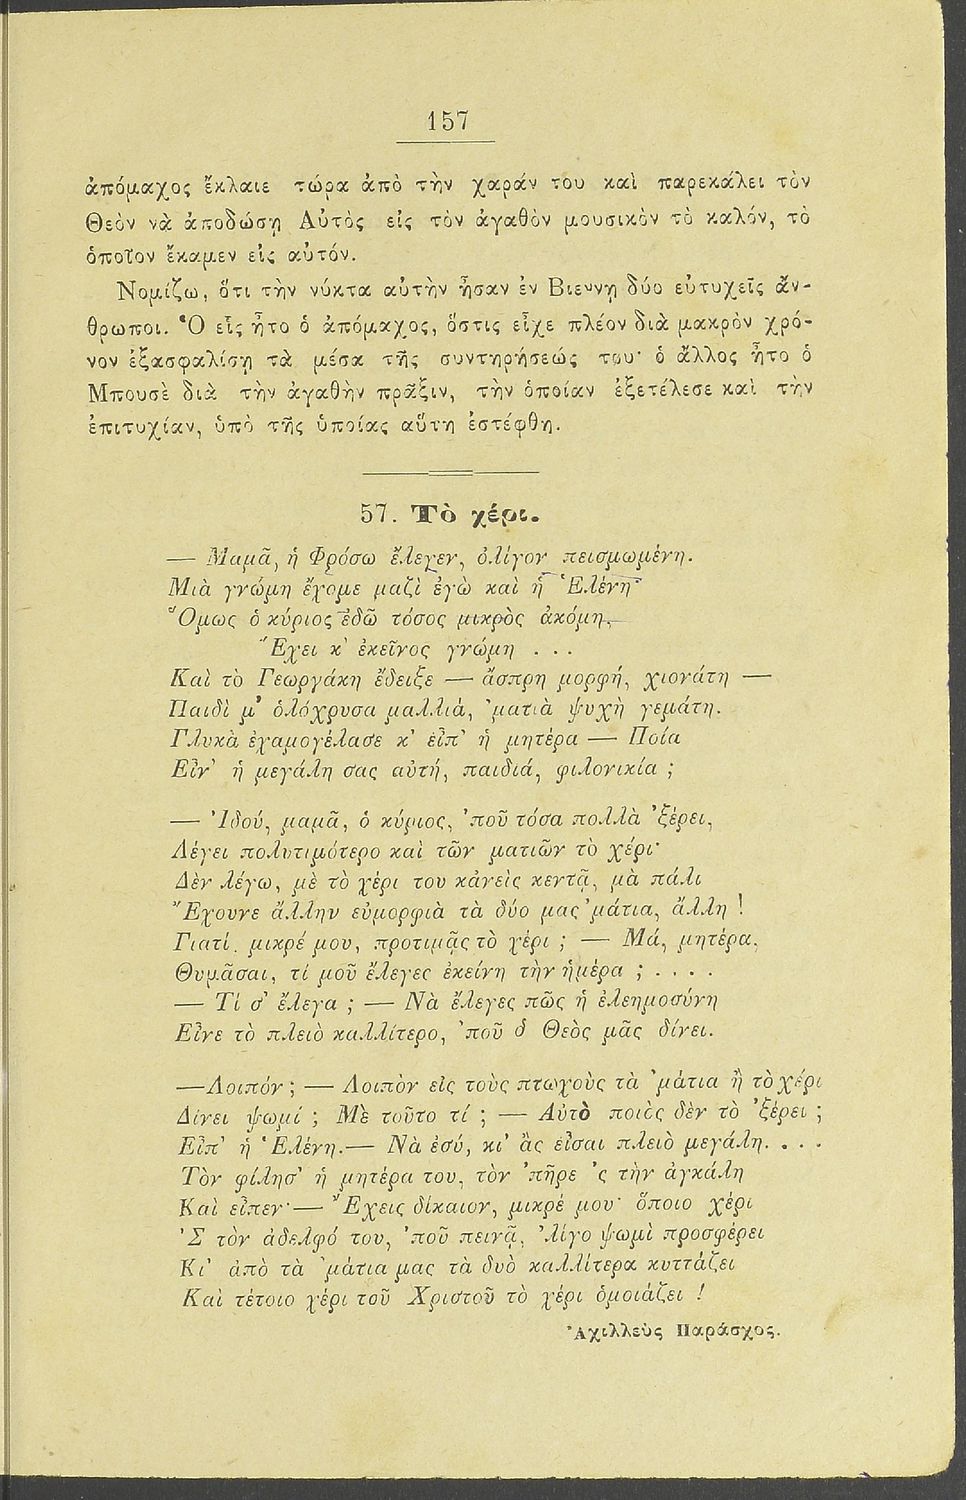 157
ἀπόμαχος ἔκλαιε τώρα ἀπὸ τὴν χαράν του καὶ παρεκάλει τὸν
Θεὸν νὰ ἀποδώσῃ Αὐτὸς εἰς τὸν ἀγαθὸν μουσικὸν τὸ καλόν, τὸ
ὁποῖον ἔκαμεν εἰς αὐτόν.
Νομίζω, ὅτι τὴν νύκτα αὐτὴν ἦσαν ἐν Βιέννῃ δύο εὐτυχεῖς ἄν-
θρωποι. Ὁ εἷς ἦτο ὁ ἀπόμαχος, ὅστις εἶχε πλέον διὰ μακρὸν χρό-
νον ἐξασφαλίσῃ τὰ μέσα τῆς συντηρήσεώς του· ὁ ἄλλος ἦτο ὁ
Μπουσὲ διὰ τὴν ἀγαθὴν πρᾶξιν, τὴν ὁποίαν ἐξετέλεσε καὶ τὴν
ἐπιτυχίαν, ὑπὸ τῆς ὁποίας αὕτη ἐστέφθη.
57. Τὸ χέρι.
— Μαμᾶ, ἡ Φρόσω ἔλεγεν, ὀλίγον πεισμωμένη.
Μιὰ γνώμη ἔχομε μαζὶ ἐγὼ καὶ ἡ Ἑλένη·
Ὅμως ὁ κύριος ἐδῶ τόσος μικρὸς ἀκόμη,
Ἔχει κ' ἐκεῖνος γνώμη . . .
Καὶ τὸ Γεωργάκη ἔδειξε — ἄσπρη μορφή, χιονάτη —
Παιδὶ μ' ὁλόχρυσα μαλλιά, 'ματιὰ ψυχὴ γεμάτη.
Γλυκὰ ἐχαμογέλασε κ' εἶπ' ἡ μητέρα — Ποία
Εἶν' ἡ μεγάλη σας αὐτή, παιδιά, φιλονικία ;
— Ἰδού, μαμᾶ, ὁ κύριος, 'ποῦ τόσα πολλὰ 'ξέρει,
Λέγει πολυτιμότερο καὶ τῶν ματιῶν τὸ χέρι·
Δὲν λέγω, μὲ τὸ χέρι του κάνεὶς κεντᾷ, μὰ πάλι
Ἔχουνε ἄλλην εὐμορφιὰ τὰ δύο μας 'μάτια, ἄλλη !
Γιατί, μικρέ μου, προτιμᾷς τὸ χέρι ; — Μά, μητέρα,
Θυμᾶσαι, τί μοῦ ἔλεγες ἐκείνη τὴν ἡμέρα ; . . . .
— Τί σ' ἔλεγα ; — Νὰ ἔλεγες πῶς ἡ ἐλεημοσύνη
Εἶνε τὸ πλειὸ καλλίτερο, 'ποῦ ὁ Θεὸς μᾶς δίνει.
—Λοιπόν ; — Λοιπὸν εἰς τοὺς πτωχοὺς τὰ 'μάτια ἢ τὸ χέρι
Δίνει ψωμί ; Μὲ τοῦτο τί ; — Αὐτὸ ποιὸς δὲν τὸ 'ξέρει ;
Εἶπ' ἡ Ἑλένη.— Νὰ ἐσύ, κι' ἂς εἶσαι πλειὸ μεγάλη. . . .
Τὸν φίλησ' ἡ μητέρα του, τὸν 'πῆρε 'ς τὴν ἀγκάλη
Καὶ εἶπεν·— Ἔχεις δίκαιον, μικρέ μου· ὅποιο χέρι
'Σ τὸν ἀδελφό του, 'ποῦ πεινᾷ, 'λίγο ψωμὶ προσφέρει
Κι' ἀπὸ τὰ 'μάτια μας τὰ δυὸ καλλίτερα κυττάζει
Καὶ τέτοιο χέρι τοῦ Χριστοῦ τὸ χέρι ὁμοιάζει !
Ἀχιλλεὺς Παράσχος.